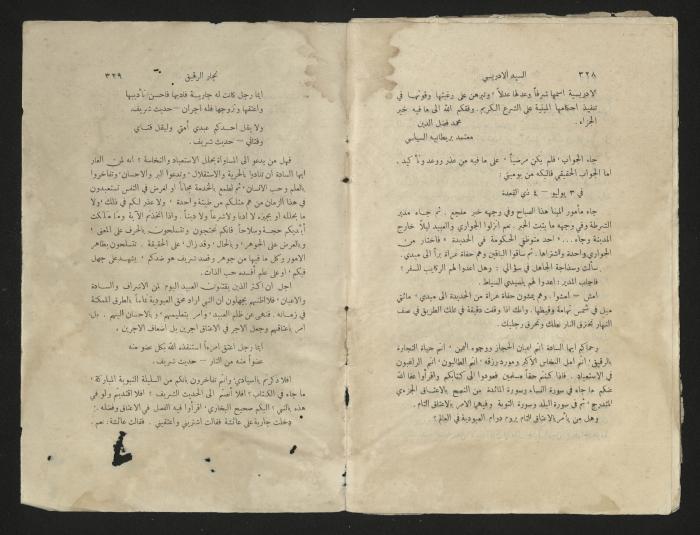 ٣٢٨ السيد الادريسي
لادريسية اسمها شرفاً وعدلها عدلاً، وتبرهن على رغبتها وقوتها في
تنفيذ احكامها المبنية على الشرع الكريم. وفقكم الله الى ما فيه خير
الجزاء.
محمد فضل الدين
معتمد بريطانيه السياسي
جاء الجواب، فلم يكن مرضياً، على ما فيه من عذر ووعد وتأكيد.
اما الجواب الحقيقي فاليكه من يوميتي:
في ٣ يوليو – ٤ ذي القعدة
جاء مأمور المينا هذا الصباح وفي وجهه خبر مفجع. ثم جاء مدير
الشرطة وفي وجهه ما يثبت الخبر. نعم انزلوا الجواري والعبيد ليلاً خارج
المدينة وجاء... احد متوظفي الحكومة في الحديدة «فاختار من
الجواري واحدة واشتراها. ثم ساقوا الباقين وهم حفاة عراة براً الى ميدي.
سألت وسذاجة الجاهل في سؤالي: وهل اعدوا لهم الركايب للسفر؟
فاجاب المدير: اعدوا لهم ياسيدي السياط.
امش – امشوا. وهم يمشون حفاة عراة من الحديدة الى ميدي، مائتي
ميل في شمس تهامة وقيظها. والله اذا وقفت دقيقة في تلك الطريق في نصف
النهار تخترق النار نعلك وتحرق رجليك.
وحماكم ايها السادة انتم اعيان الحجاز ووجوه اليمن، انتم حياة التجارة
بالرقيق، انتم امل النخاس الاكبر ومورد رزقه، انتم الطالبون، انتم الراغبون
في الاستعباد. فاذا كنتم حقاً مسلمين فعودوا الى كتابكم واقرأوا عفا الله
عنكم ما جاء في سورة النساء وسورة المائدة من النصح بالاعتاق الجزئي
المتدرج، ثم في سورة البلد وسورة التوبة وفيهما الامر بالاعتاق التام.
وهل من يأمر بالاعتاق التام يروم دوام العبودية في العالم؟
تجار الرقيق ٣٢٩
ايما رجل كانت له جارية فادبها فاحسن تأديبها
واعتقها وتزوجها فله اجران – حديث شريف.
ولا يقل احدكم عبدي أمتي وليقل فتاي
وفتاتي – حديث شريف.
فهل من يدعو الى المساواة يحلل الاستعباد والنخاسة؟ انه لمن العار
ايها السادة ان تنادوا بالحرية والاستقلال، وتدعوا البر والاحسان، وتفاخروا
بالعلم وحب الانسان، ثم تطمع بالخدمة مجاناً او لغرض في النفس تستعبدون
في هذا الزمان من هم مثلكم من طينة واحدة، ولا عذر لكم في ذلك، ولا
ما يحلله او يجيزه لا ادباً ولا شرعاً ولا ديناً. واذا اتخذتم الآية وما ملكت
أيديكم حجة وسلاحاً فانكم تحتجون وتتسلحون بالحرف على المعنى،
وبالعرض على الجوهر، وبالحال، وقد زال، على الحقيقة. تتسلحون بظاهر
الامور وكل ما فيها من جوهر وقصد شريف هو ضدكم، يشهد على جهل
فيكم، او على علم أفسده حب الذات.
اجل ان اكثر الذين يقتنون العبيد اليوم لمن الاشراف والسادة
والاعيان، فلا اظنهم يجهلون ان النبي اراد محق العبودية تماماً بالطرق الممكنة
في زمانه. فنهى عن ظلم العبيد، وأمر بتعليمهم، وبالاحسان اليهم. بل
امر باعتاقهم وجعل الاجر في الاعتاق اجرين بل اضعاف الاجرين.
ايما رجل اعتق امرءاً استنقذ الله بكل عضو منه
عضواً منه من النار – حديث شريف.
افلا ذكرتم ياسيادي، وانتم تفاخرون بانكم من السليلة النبوية المباركة،
ما جاء في الكتاب؟ افلا أصغيتم الى الحديث الشريف؟ افلا اقتديتم ولو في
هذه بالنبي؟ اليكم صحيح البخاري، اقرأوا فيه الفصل في الاعتاق وفضله:
دخلت جارية على عائشة فقالت اشتريني واعتقيني. فقالت عائشة: نعم.